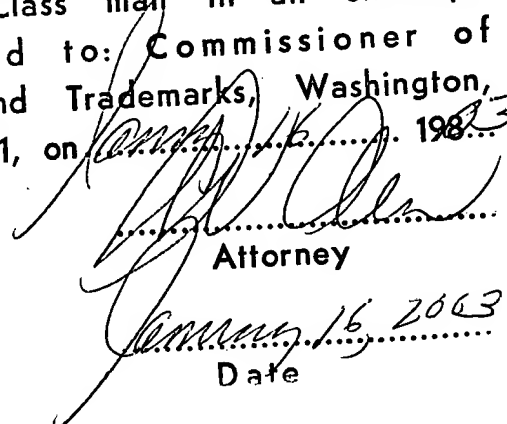 Class mail in an
d to: Commissioner of
nd Trademarks, Washington,
1, on January 16 198
Attorney
January 16, 2003
Date